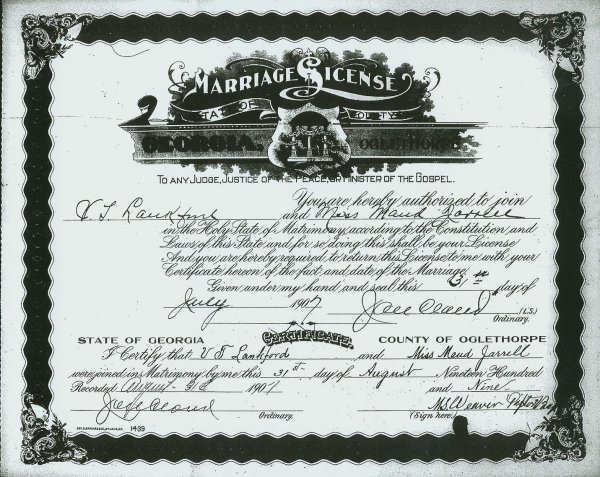 MARRIAGE LICENSE
STATE OF COUNTY
GEORGIA, OGLETHORPE
TO ANY JUDGE, JUSTICE OF THE PEACE, OR MINISTER OF THE GOSPEL.
You are hereby authorized to join
V T Lankford and Miss Maud Jarrell
in the Holy State of Matrimony, according to the Constitution and
Laws of this State and for so doing this shall be your License
And you are hereby required to return this License to me with your
Certificate hereon of the fact and date of the Marriage.
Given under my hand and seal this 31st day of
July 1907 (L.S.)
Ordinary.
CERTIFICATE.
STATE OF GEORGIA COUNTY OF OGLETHORPE
I Certify, that V T Lankford and Miss Maud Jarrell
were joined in Matrimony by me this 31st day of August Nineteen Hundred
and Nine
Recorded 1907
M.S. Weaver
Ordinary. (Sign here)
1439